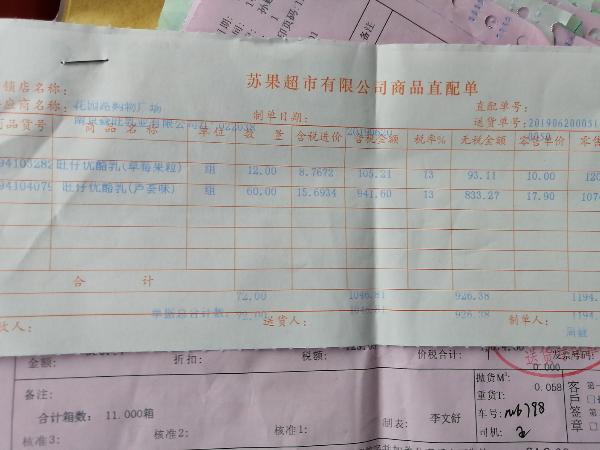 印页码:1
备注
苏果超市有限公司商品直配单
锁店名称:
花园路购物广场
直配单号:
应商名称:
制单日期:
20190620
送货单号:
201906200051
商品货号 商品名称 单位 数量 含税进价 含税金额 税率% 无税金额 零售单价 零售
94103282 旺仔优酪乳(草莓果粒) 组 12.00 8.7672 105.21 13 93.11 10.00 120
9410407 旺仔优酪乳(芦荟味) 组 60.00 15.6934 941.60 13 833.27 17.90 107
合计
72.00 1046.81 926.38 1194.
单据总合计数: 72.00 1046.81 926.38 1194.
收人: 送货人: 制单人:
金额: 折扣: 税额: 价税合计: 发票号码:
0.000
备注:
抛货M³: 0.058
重货T:
合计箱数: 11.000箱
车号:
核准3: 核准2: 核准1: 制表: 李文舒 司机:
客户签章